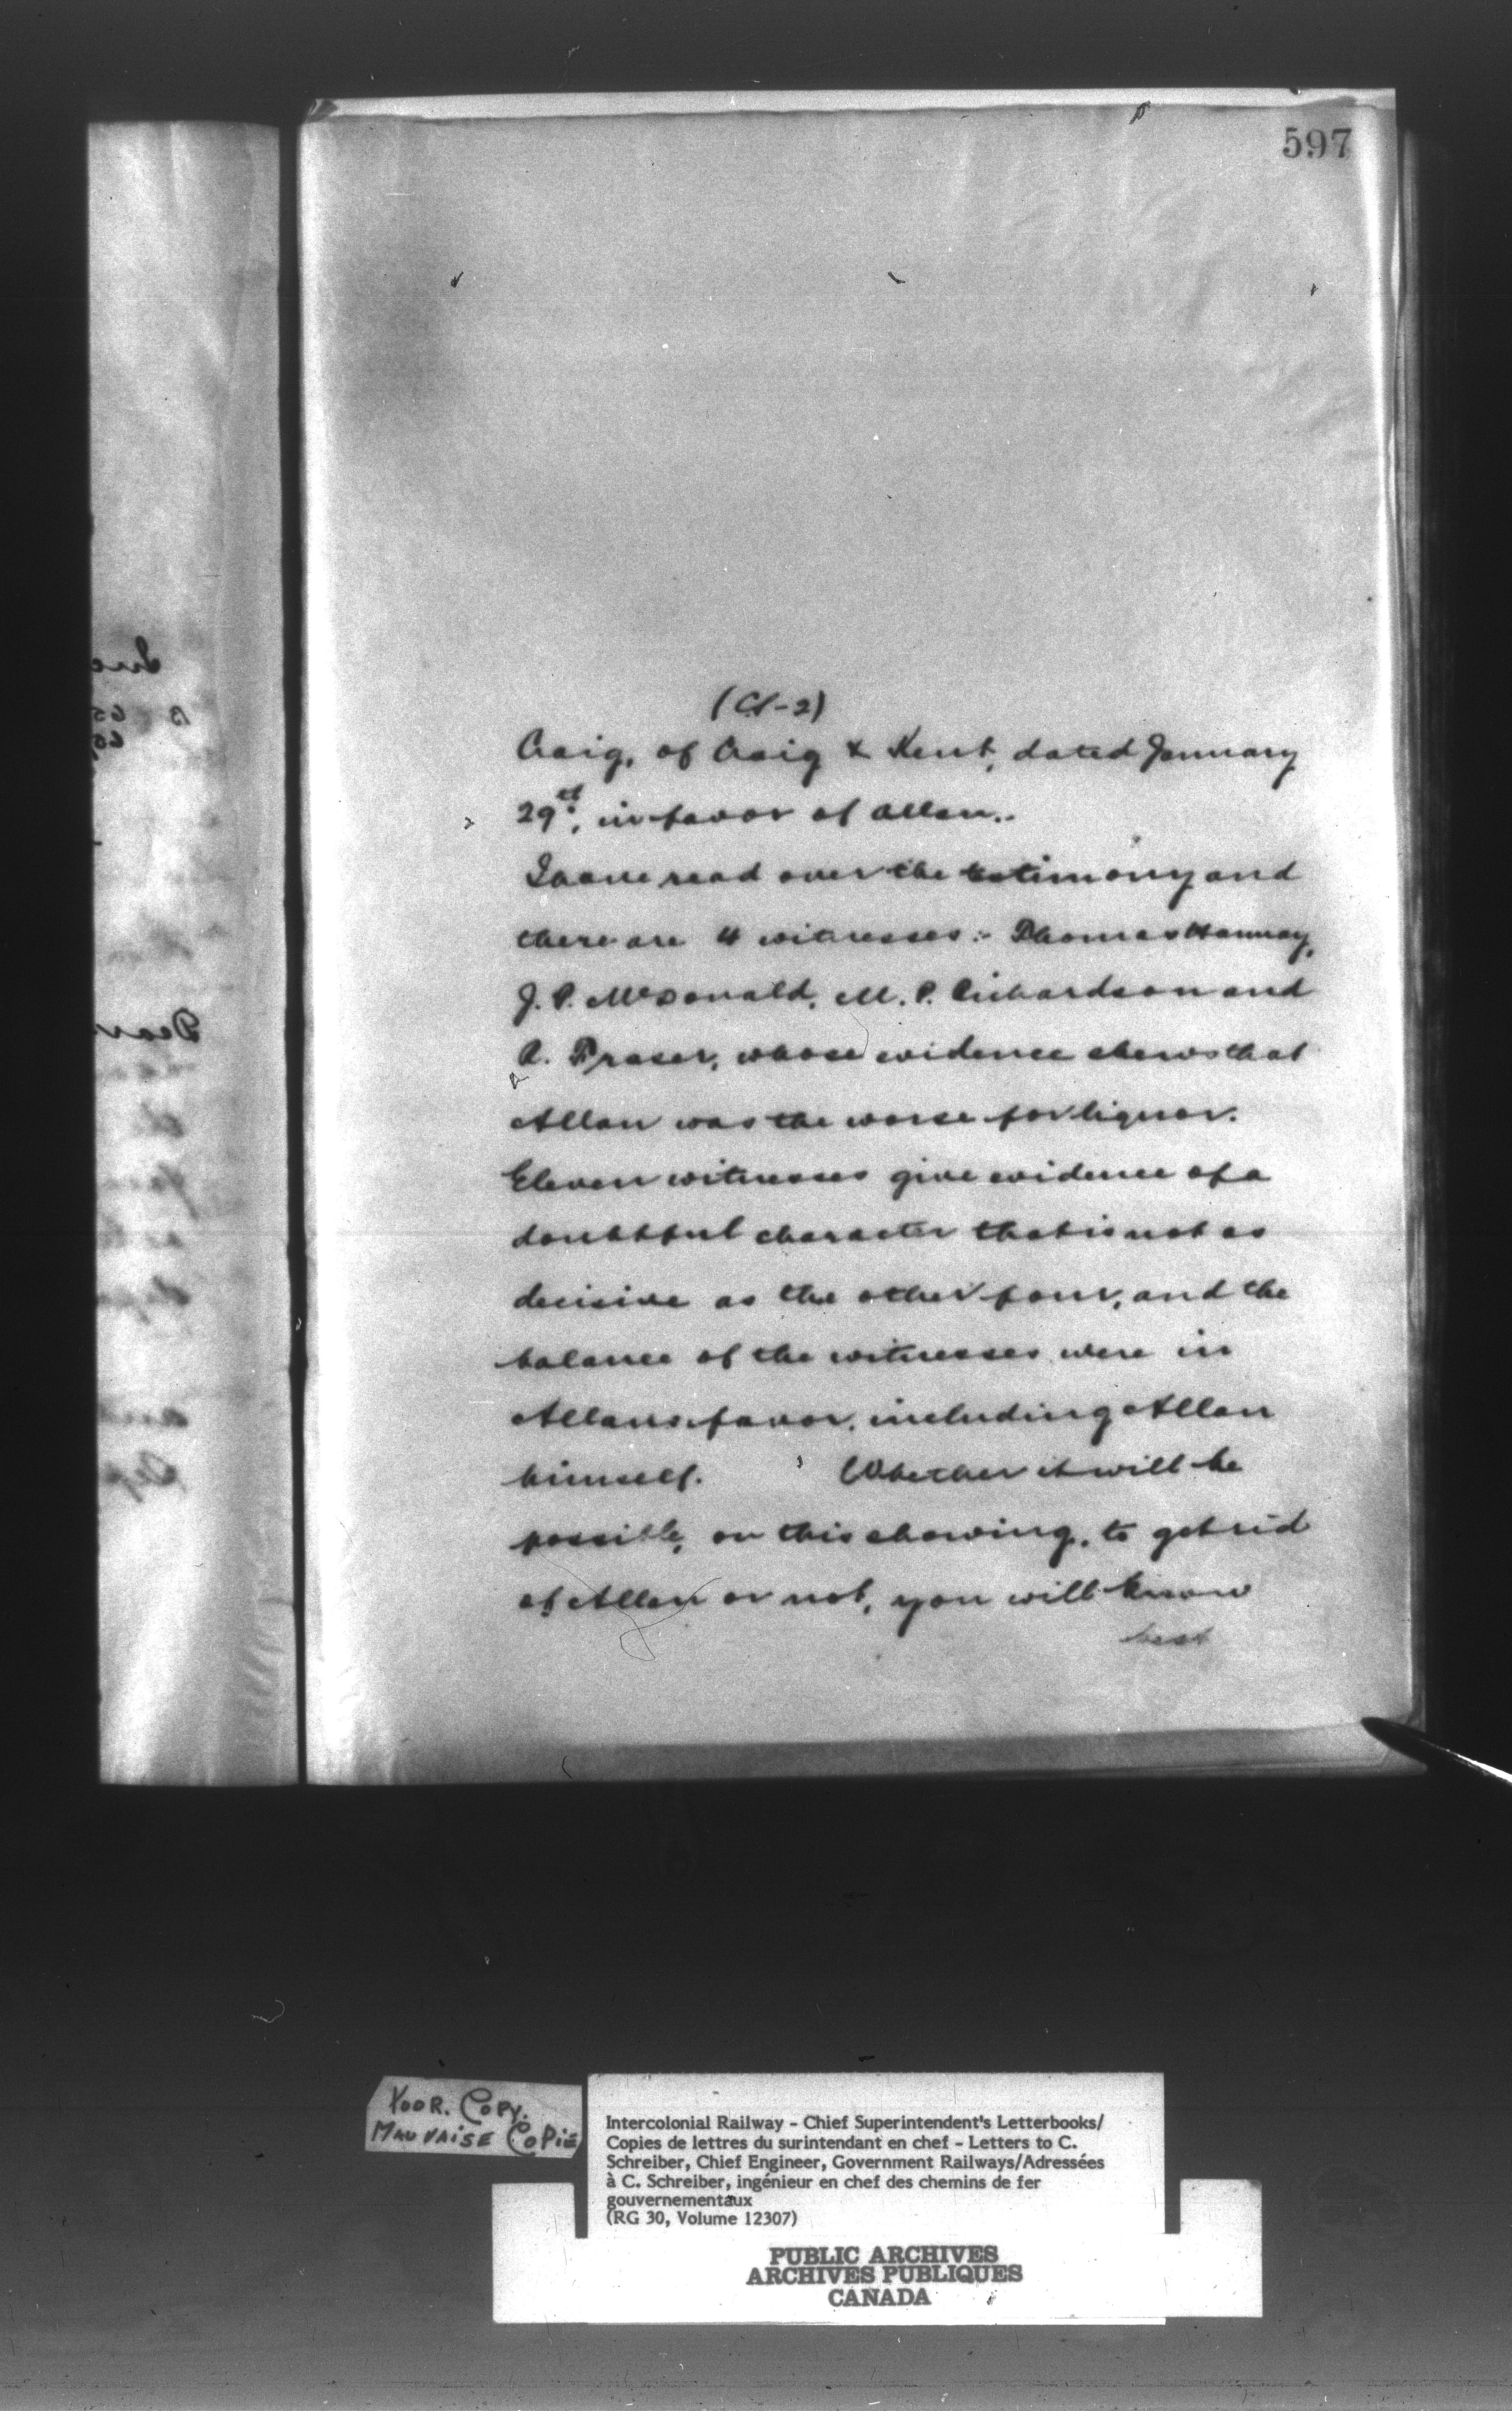 597
(CS-2)
Craig, of Craig & Kent, dated January
29th, in favor of Allan.
I have read over the testimony and
there are 4 witnesses:- Thomas Hannay,
J. P. McDonald, M. P. Richardson and
A. Fraser, whose evidence shews that
Allan was the worse for liquor.
Eleven witnesses give evidence of a
doubtful character that is not as
decisive as the other four, and the
balance of the witnesses were in
Allans favor, including Allan
himself. Whether it will be
possible, on this showing, to get rid
of Allan or not, you will know
best
Dear
POOR. COPY.
MAUVAISE COPIE
Intercolonial Railway - Chief Superintendent's Letterbooks/
Copies de lettres du surintendant en chef - Letters to C.
Schreiber, Chief Engineer, Government Railways/Adressées
à C. Schreiber, ingénieur en chef des chemins de fer
gouvernementaux
(RG 30, Volume 12307)
PUBLIC ARCHIVES
ARCHIVES PUBLIQUES
CANADA